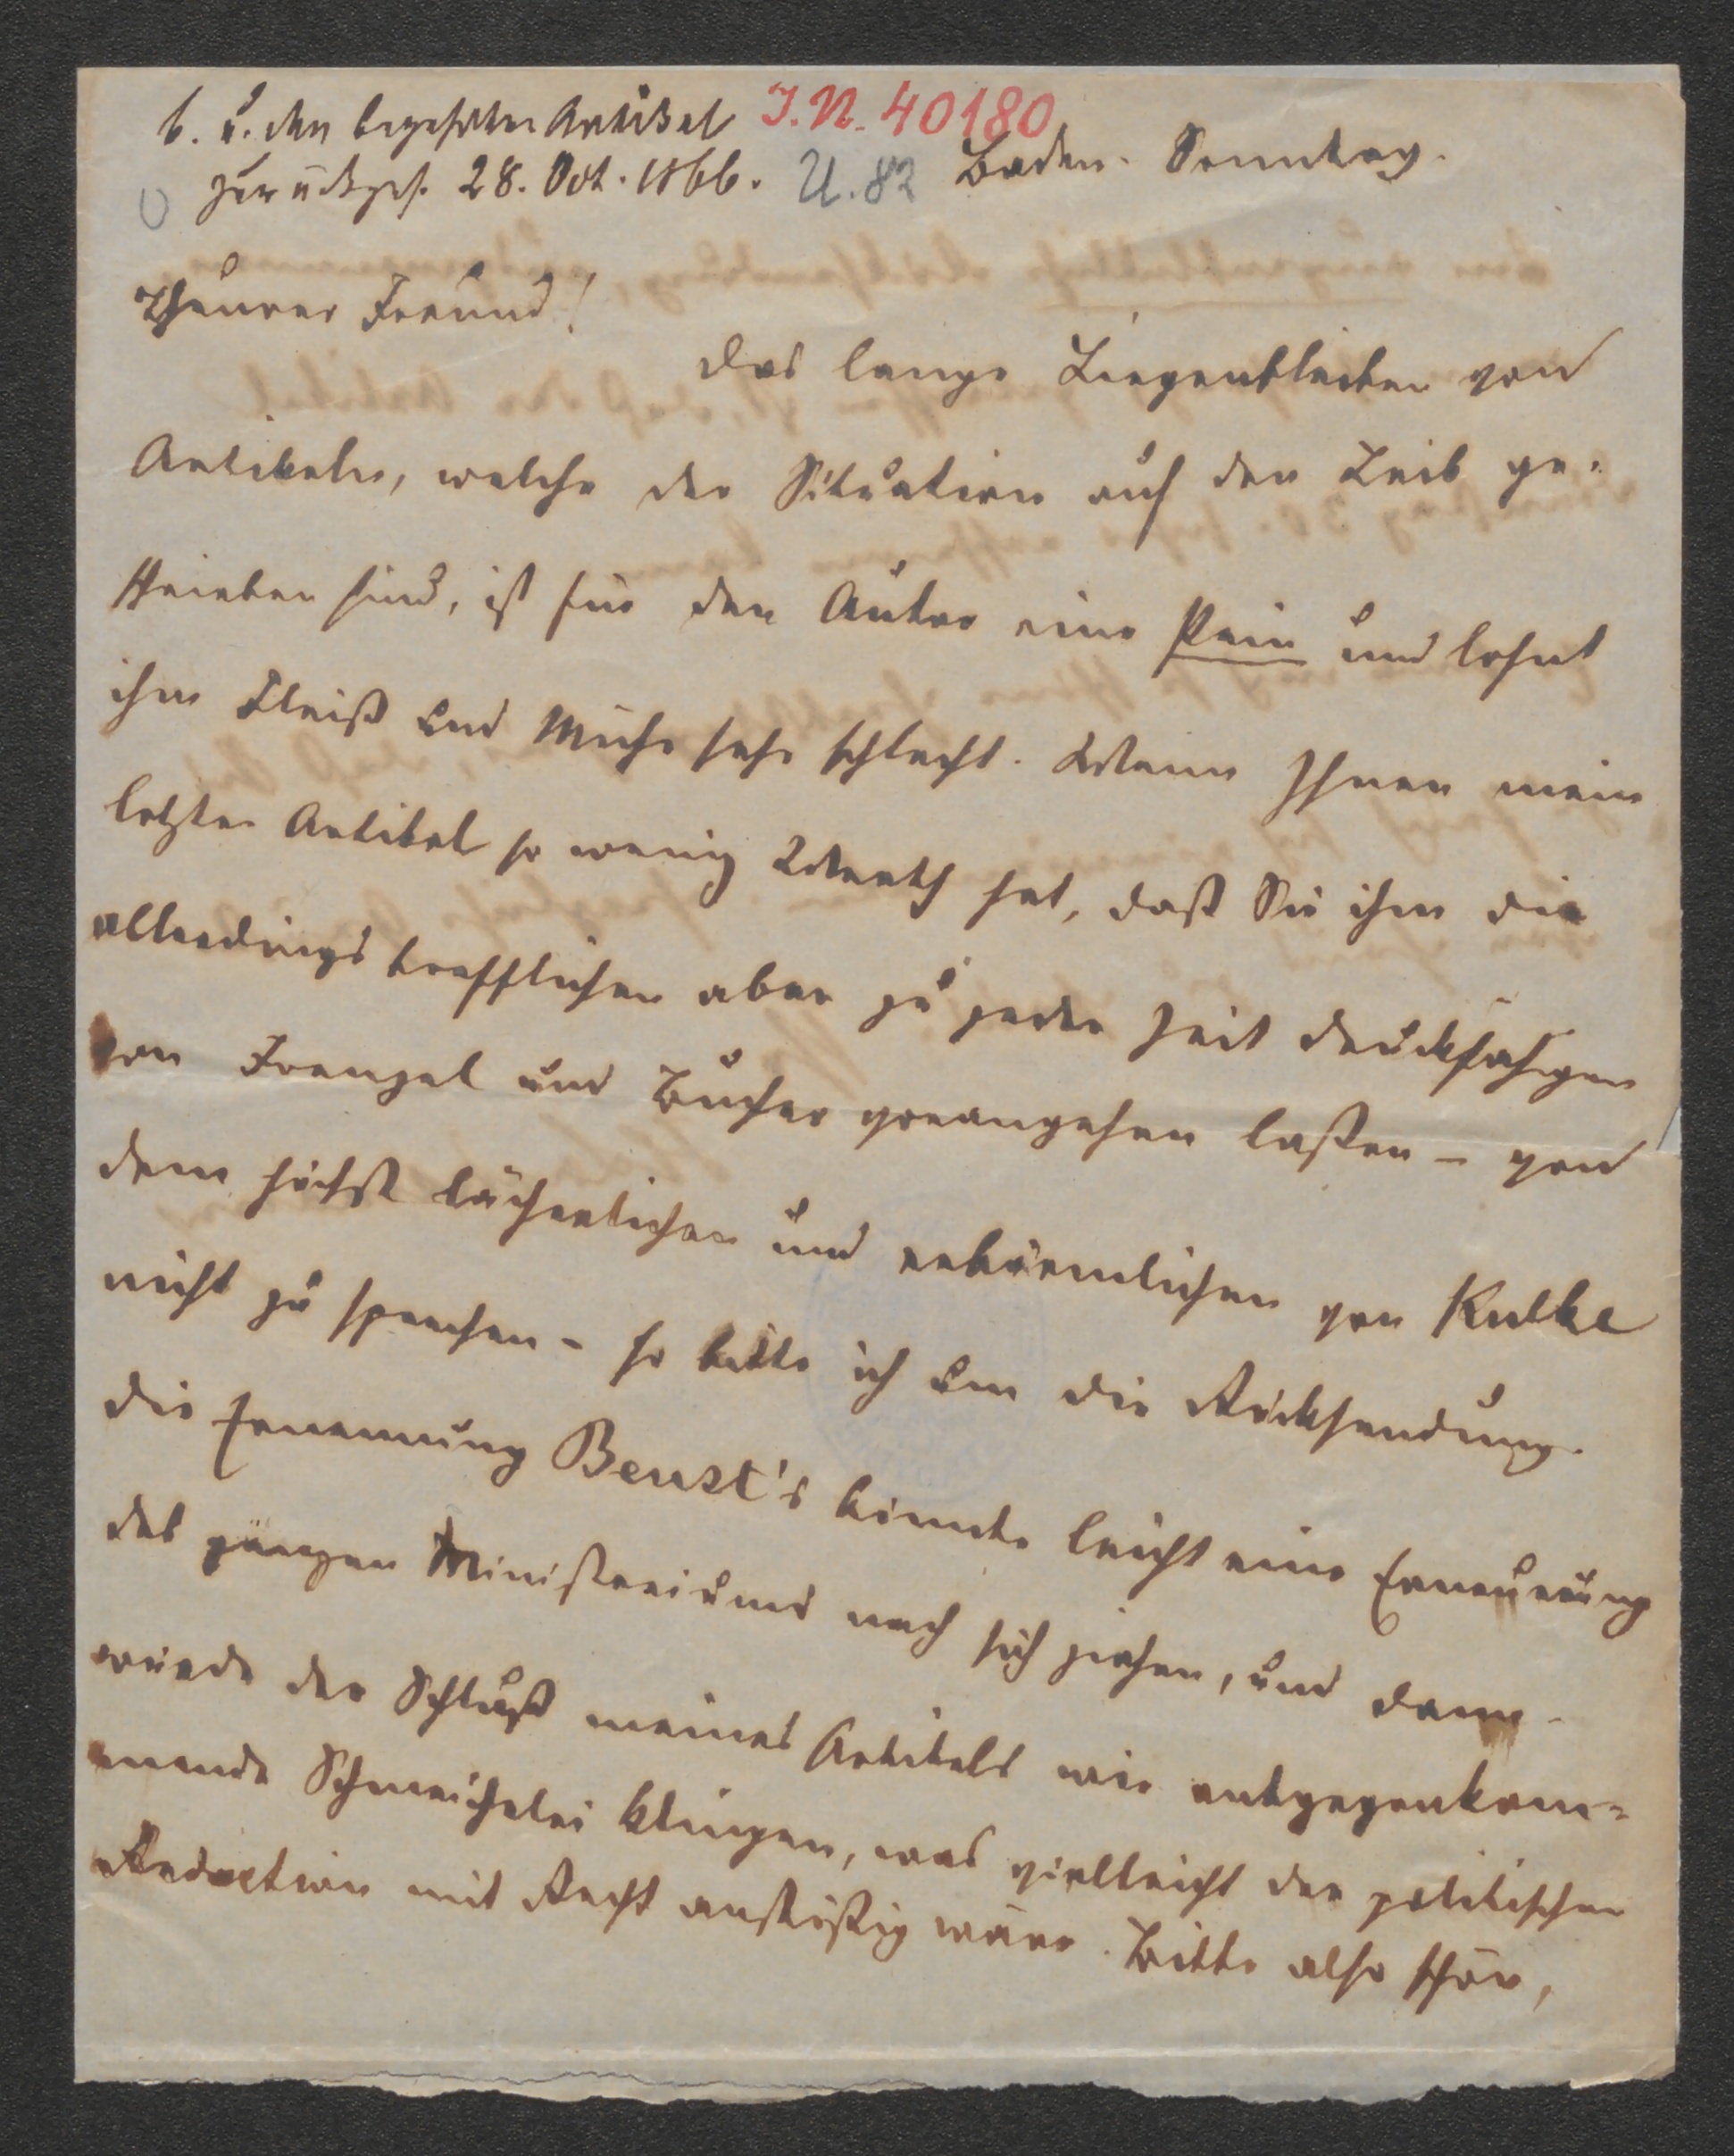 b. u. den begehrten Artikel J.N. 40180
zurückges. 28. Oct. 1866. U. 82 Baden. Sonntag.
Theurer Freund!
Das lange Liegenbleiben von
Artikeln, welche der Situation auf den Leib ge-
schrieben sind, ist für den Autor eine Pein und lohnt
ihm Fleiß und Mühe sehr schlecht. Wenn Ihnen mein
letzter Artikel so wenig Werth hat, daß Sie ihm die
allerdings trefflichen aber zu jeder Zeit druckfähigen
von Frenzel und Bucher vorangehen laßen – von
dem höchst lächerlichen und erbärmlichen von Kulke
nicht zu sprechen – so bitte ich um die Rücksendung.
Die Ernennung Beust's könnte leicht eine Erneuerung
des ganzen Ministeriums nach sich ziehen, und dann
würde der Schluß meines Artikels wie entgegenkom-
mende Schmeichelei klingen, was vielleicht der politischen
Redaction mit Recht anstößig wäre. Bitte also schön,